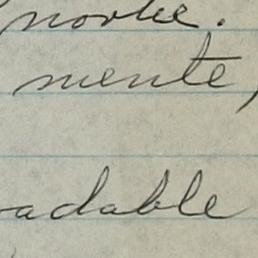 noche.
mente,
adable